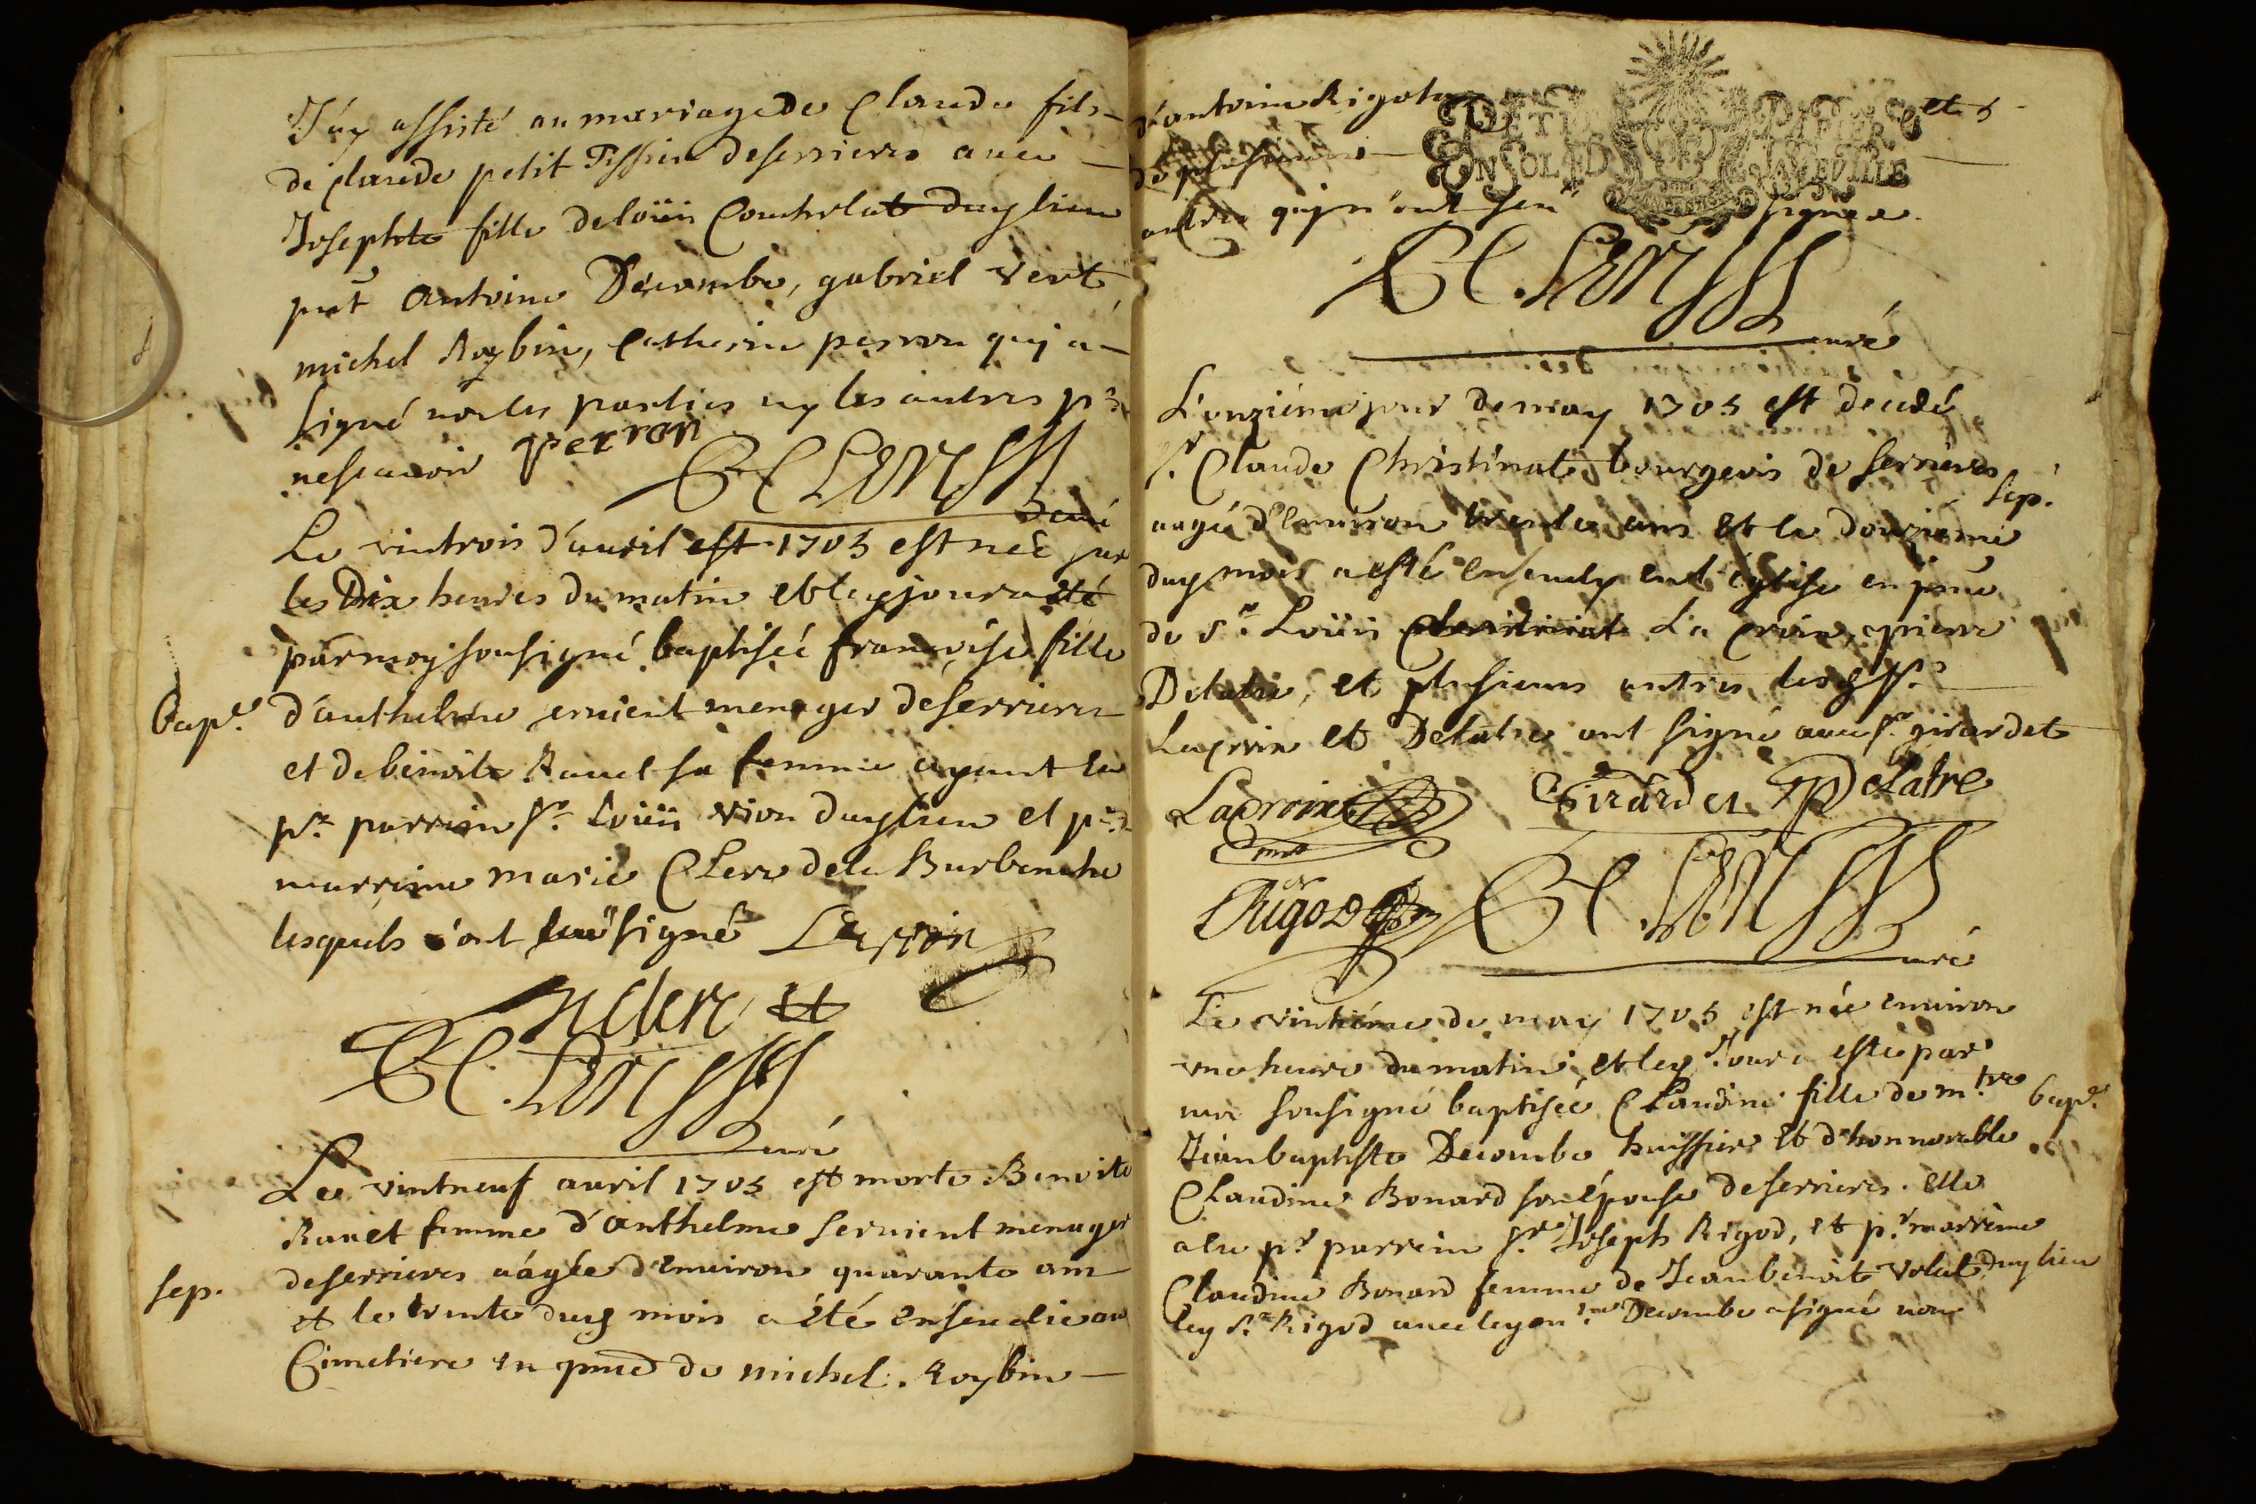 J'ay assisté au mariage de Claude fils
de Claude petit Tissier deserrieres avec
Josephte fille de loüis Couchelat duy lieu
pnt antoine Decombe, gabriel vert
michel Roybin, Catherine perron quj a
signé non les parties ny les autres pr
nescavoir perron
curé
Le vintrois d'avril est 1705 est née sur
les Dix heures du matin et ley jour a été
par moy sousigné baptiséé francoise fille
bap.e d'anthelme servient menager deserrieres
et de benoite Ravet sa femme ayant eu
pr parrein sr. Loüis vion duy lieu et pr
marreine marie Clerc dela Burbenche
lesquels ont signé
M Clerc
curé
Le vintneuf avril 1705 est morte Benoite
Ravet femme d'anthelme servient menager
sep. deserrieres aágée d'environ quarante ans
et le trente duy mois a été ensevelie au
Cimetiere en pnce de michel. Roybin
d'antoine Rigolet et
de plusieurs
PETIT PAPIER
UN SOL 4 D LA FEUILLE
autres quj n'ont sceu signer.
curé
L'onziéme jour de may 1705 est decedé
sr Claude Christinat bourgeois de serrieres
sep.
aagé d'environ trente ans et le douziéme
duy mois a esté ensevely en l'églize en pnce
de sr. Loüis Christinat La Croix, pierre
Delatre, et plusieurs autres lesq sr.
Lacroix et Delatre ont signé avec sr. girardet
Lacroix Girardet P Delatre
Rigod
curé
Le vintiéme de may 1705 est née environ
une heure du matin et ley Jour a esté par
moi sousigné baptisée Claudine fille de m.tre bap.e
Jeanbaptiste Decombe huissier et d'honnorable
Claudine Bonard son épouse deserrieres. elle
a eu pr parrein sr. Joseph Rigod, et pr marreine
Claudine Bonard femme de Jeanbenoit volat duy lieu
ley sr Rigod avec ley m.tre Decombe a signé non